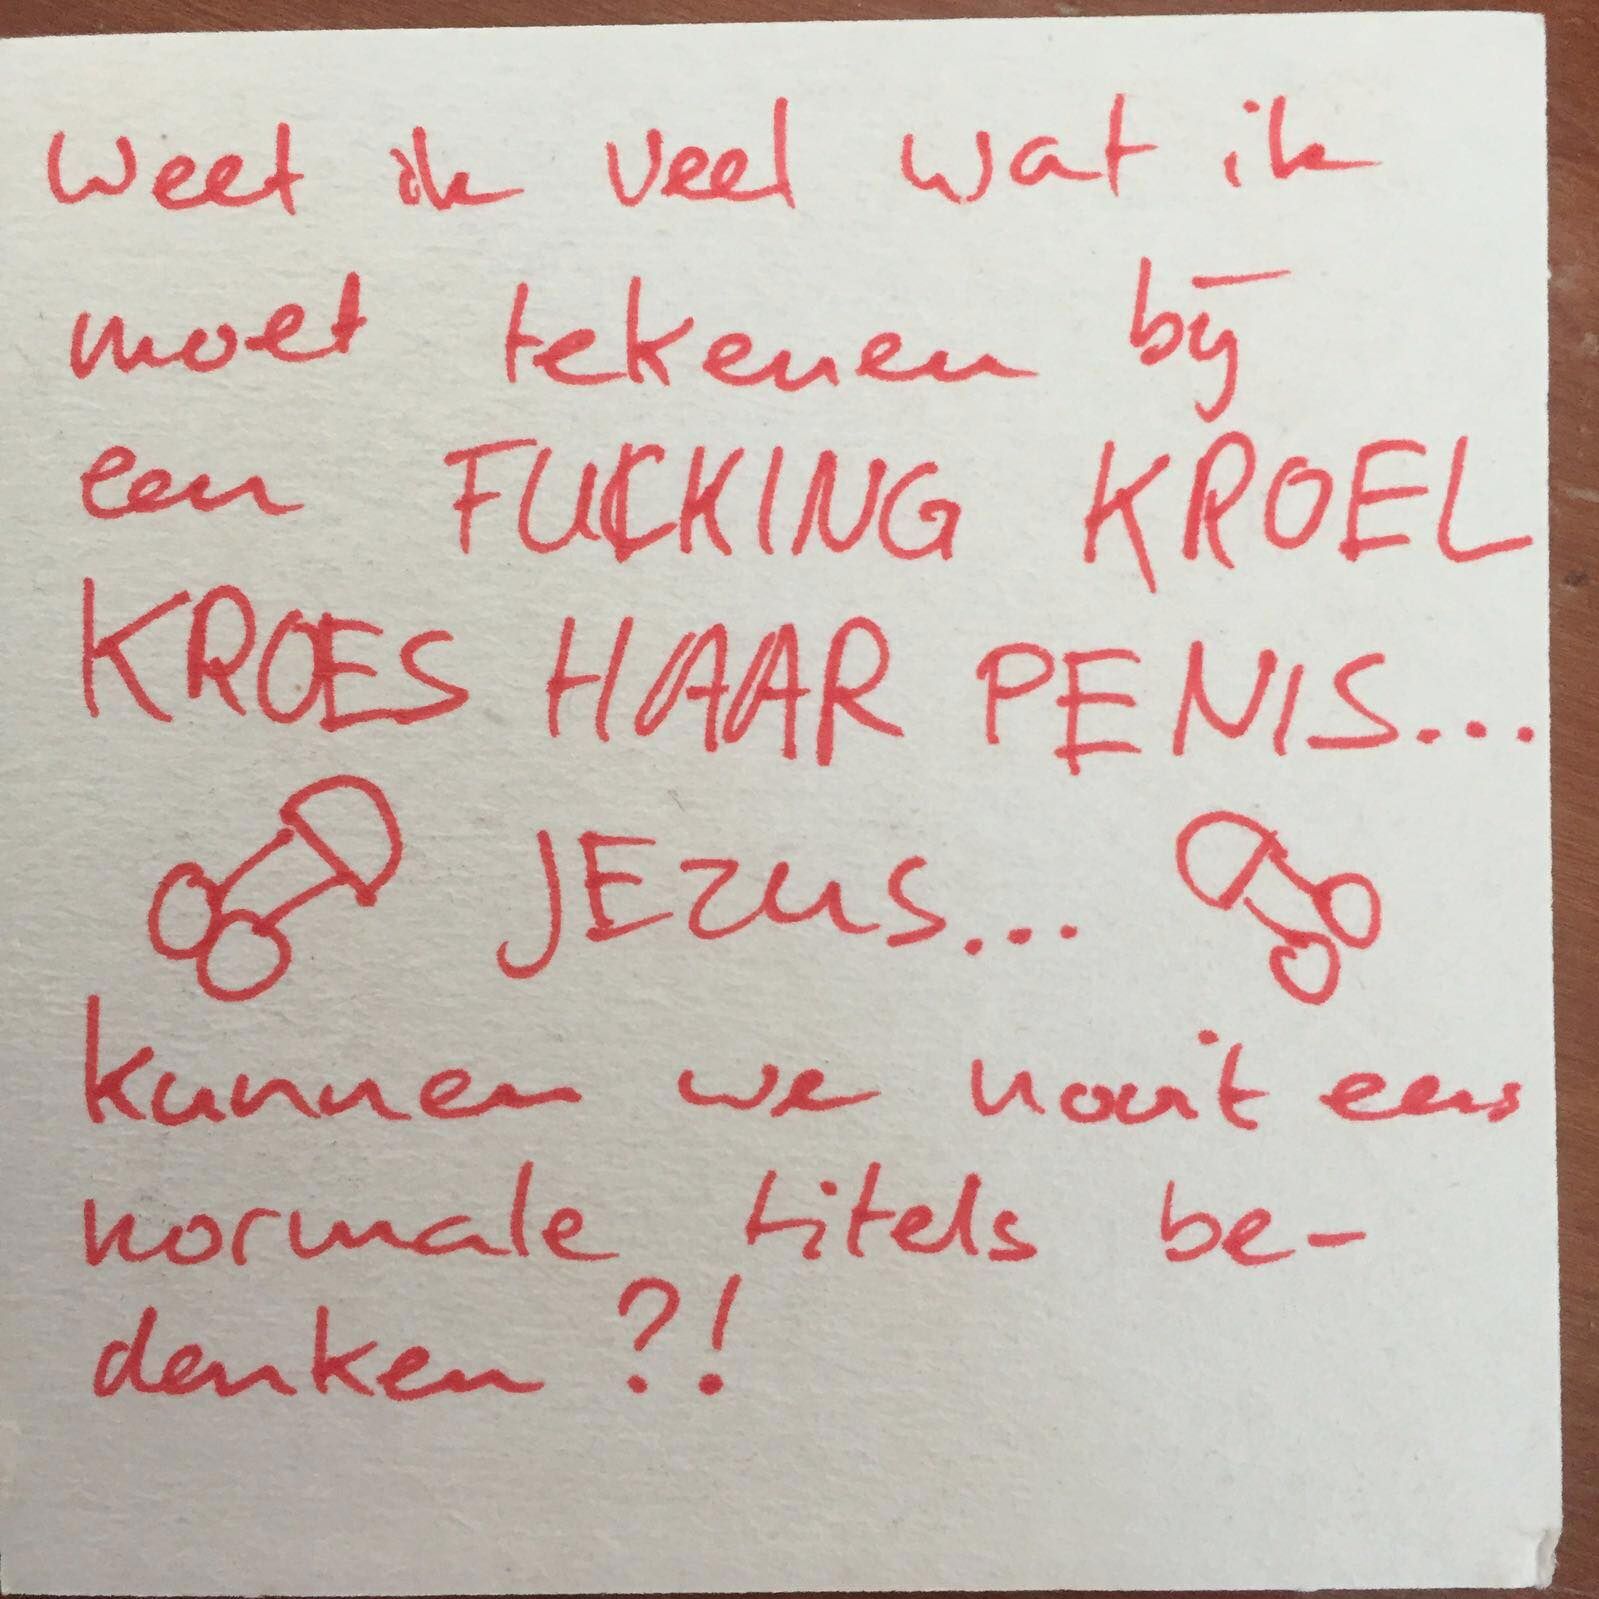 Weet ik veel wat ik
moet tekenen bij
een FUCKING KROEL
KROES HAAR PENIS...
JEZUS...
kunnen we nooit eens
normale titels be-
denken?!